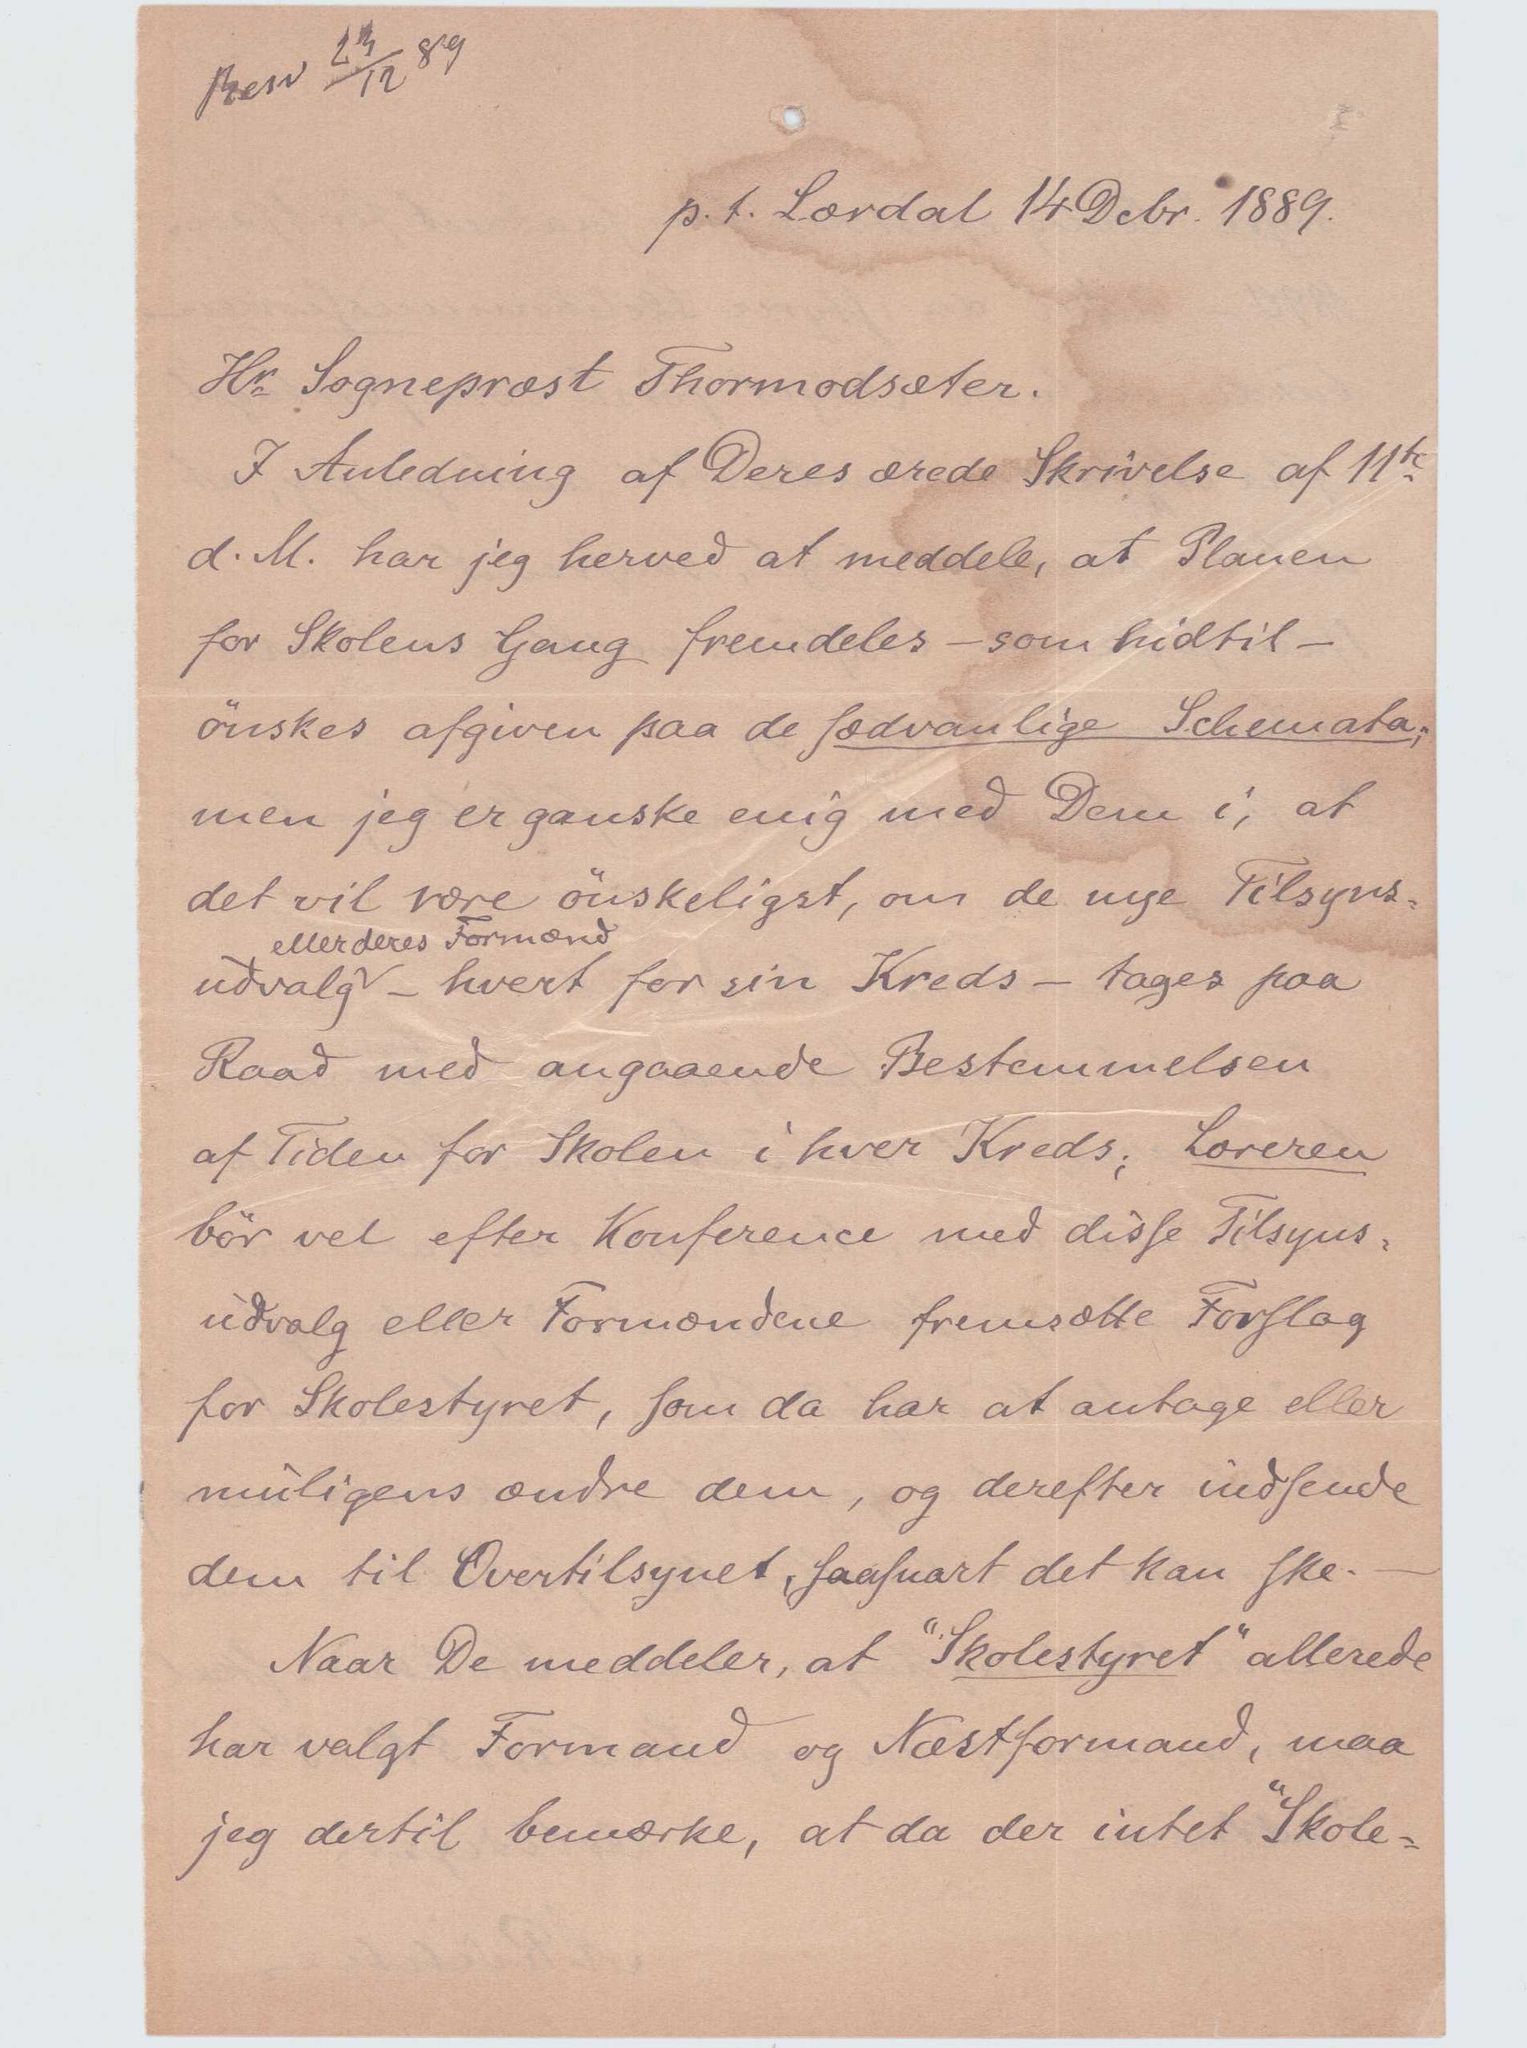 Besv 23/12 89
p. t. Lærdal 14 Debr. 1889.
Hr. Sognepræst Thormodsæter.
I Anledning af Deres ærede Skrivelse af 11te
d. M. har jeg herved at meddele, at Planen
for Skolens Gang fremdeles – som hidtil –
önskes afgiven paa de sædvanlige Schemata;
men jeg er ganske enig med Dem i, at
det vil være önskeligst, om de nye Tilsyns-
eller deres Formænd
udvalg – hvert for sin Kreds – tages paa
Raad med angaaende Bestemmelsen
af Tiden for Skolen i hver Kreds; Læreren
bör vel efter Konference med disse Tilsyns-
udvalg eller Formændene fremsætte Forslag
for Skolestyret, som da har at antage eller
muligens ændre dem, og derefter indsende
dem til Overtilsynet, saasnart det kan ske. –
Naar De meddeler, at "Skolestyret" allerede
har valgt Formand og Næstformand, maa
jeg dertil bemærke, at da der intet "Skole-